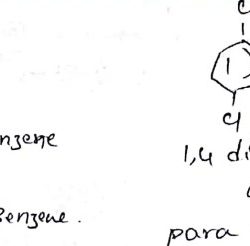 Cl
nzene
1,4 di
Benzene.
para